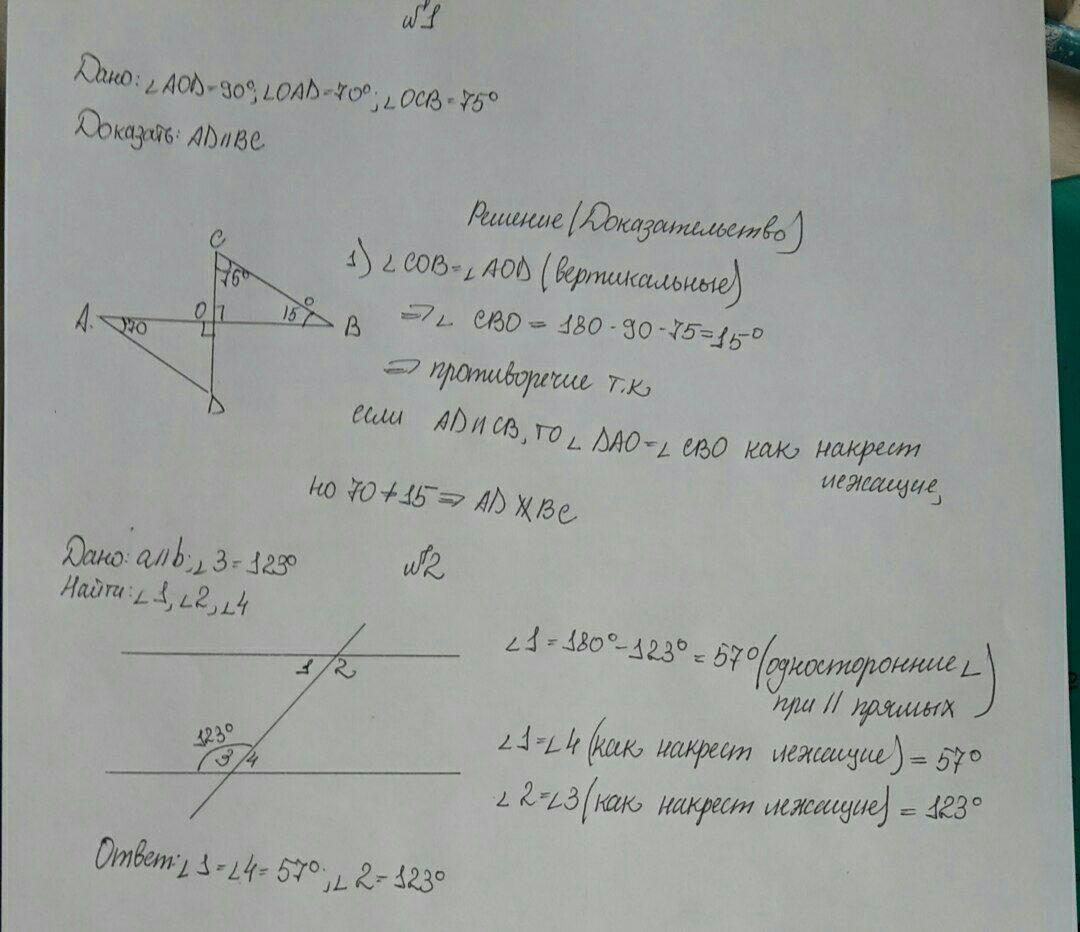 №1
Дано: ∠AOD=90°; ∠OAD=70°; ∠OCB=75°
Доказать: AD∥BC
Решение (Доказательство)
1) ∠COB=∠AOD (вертикальные)
⇒∠ CBO = 180-90-75=15°
⇒ противоречие т.к
если AD∥CB, то ∠ DAO=∠ CBO как накрест
лежащие,
но 70≠15⇒ AD∦BC
C
75°
A.
70
O
15°
B
D
№2
Дано: a∥b; ∠3=123°
Найти: ∠1, ∠2, ∠4
1 2
123°
3 4
∠1=180°-123°=57° (односторонние ∠
при ∥ прямых)
∠1=∠4 (как накрест лежащие) = 57°
∠2=∠3 (как накрест лежащие) = 123°
Ответ: ∠1=∠4=57°; ∠2=123°